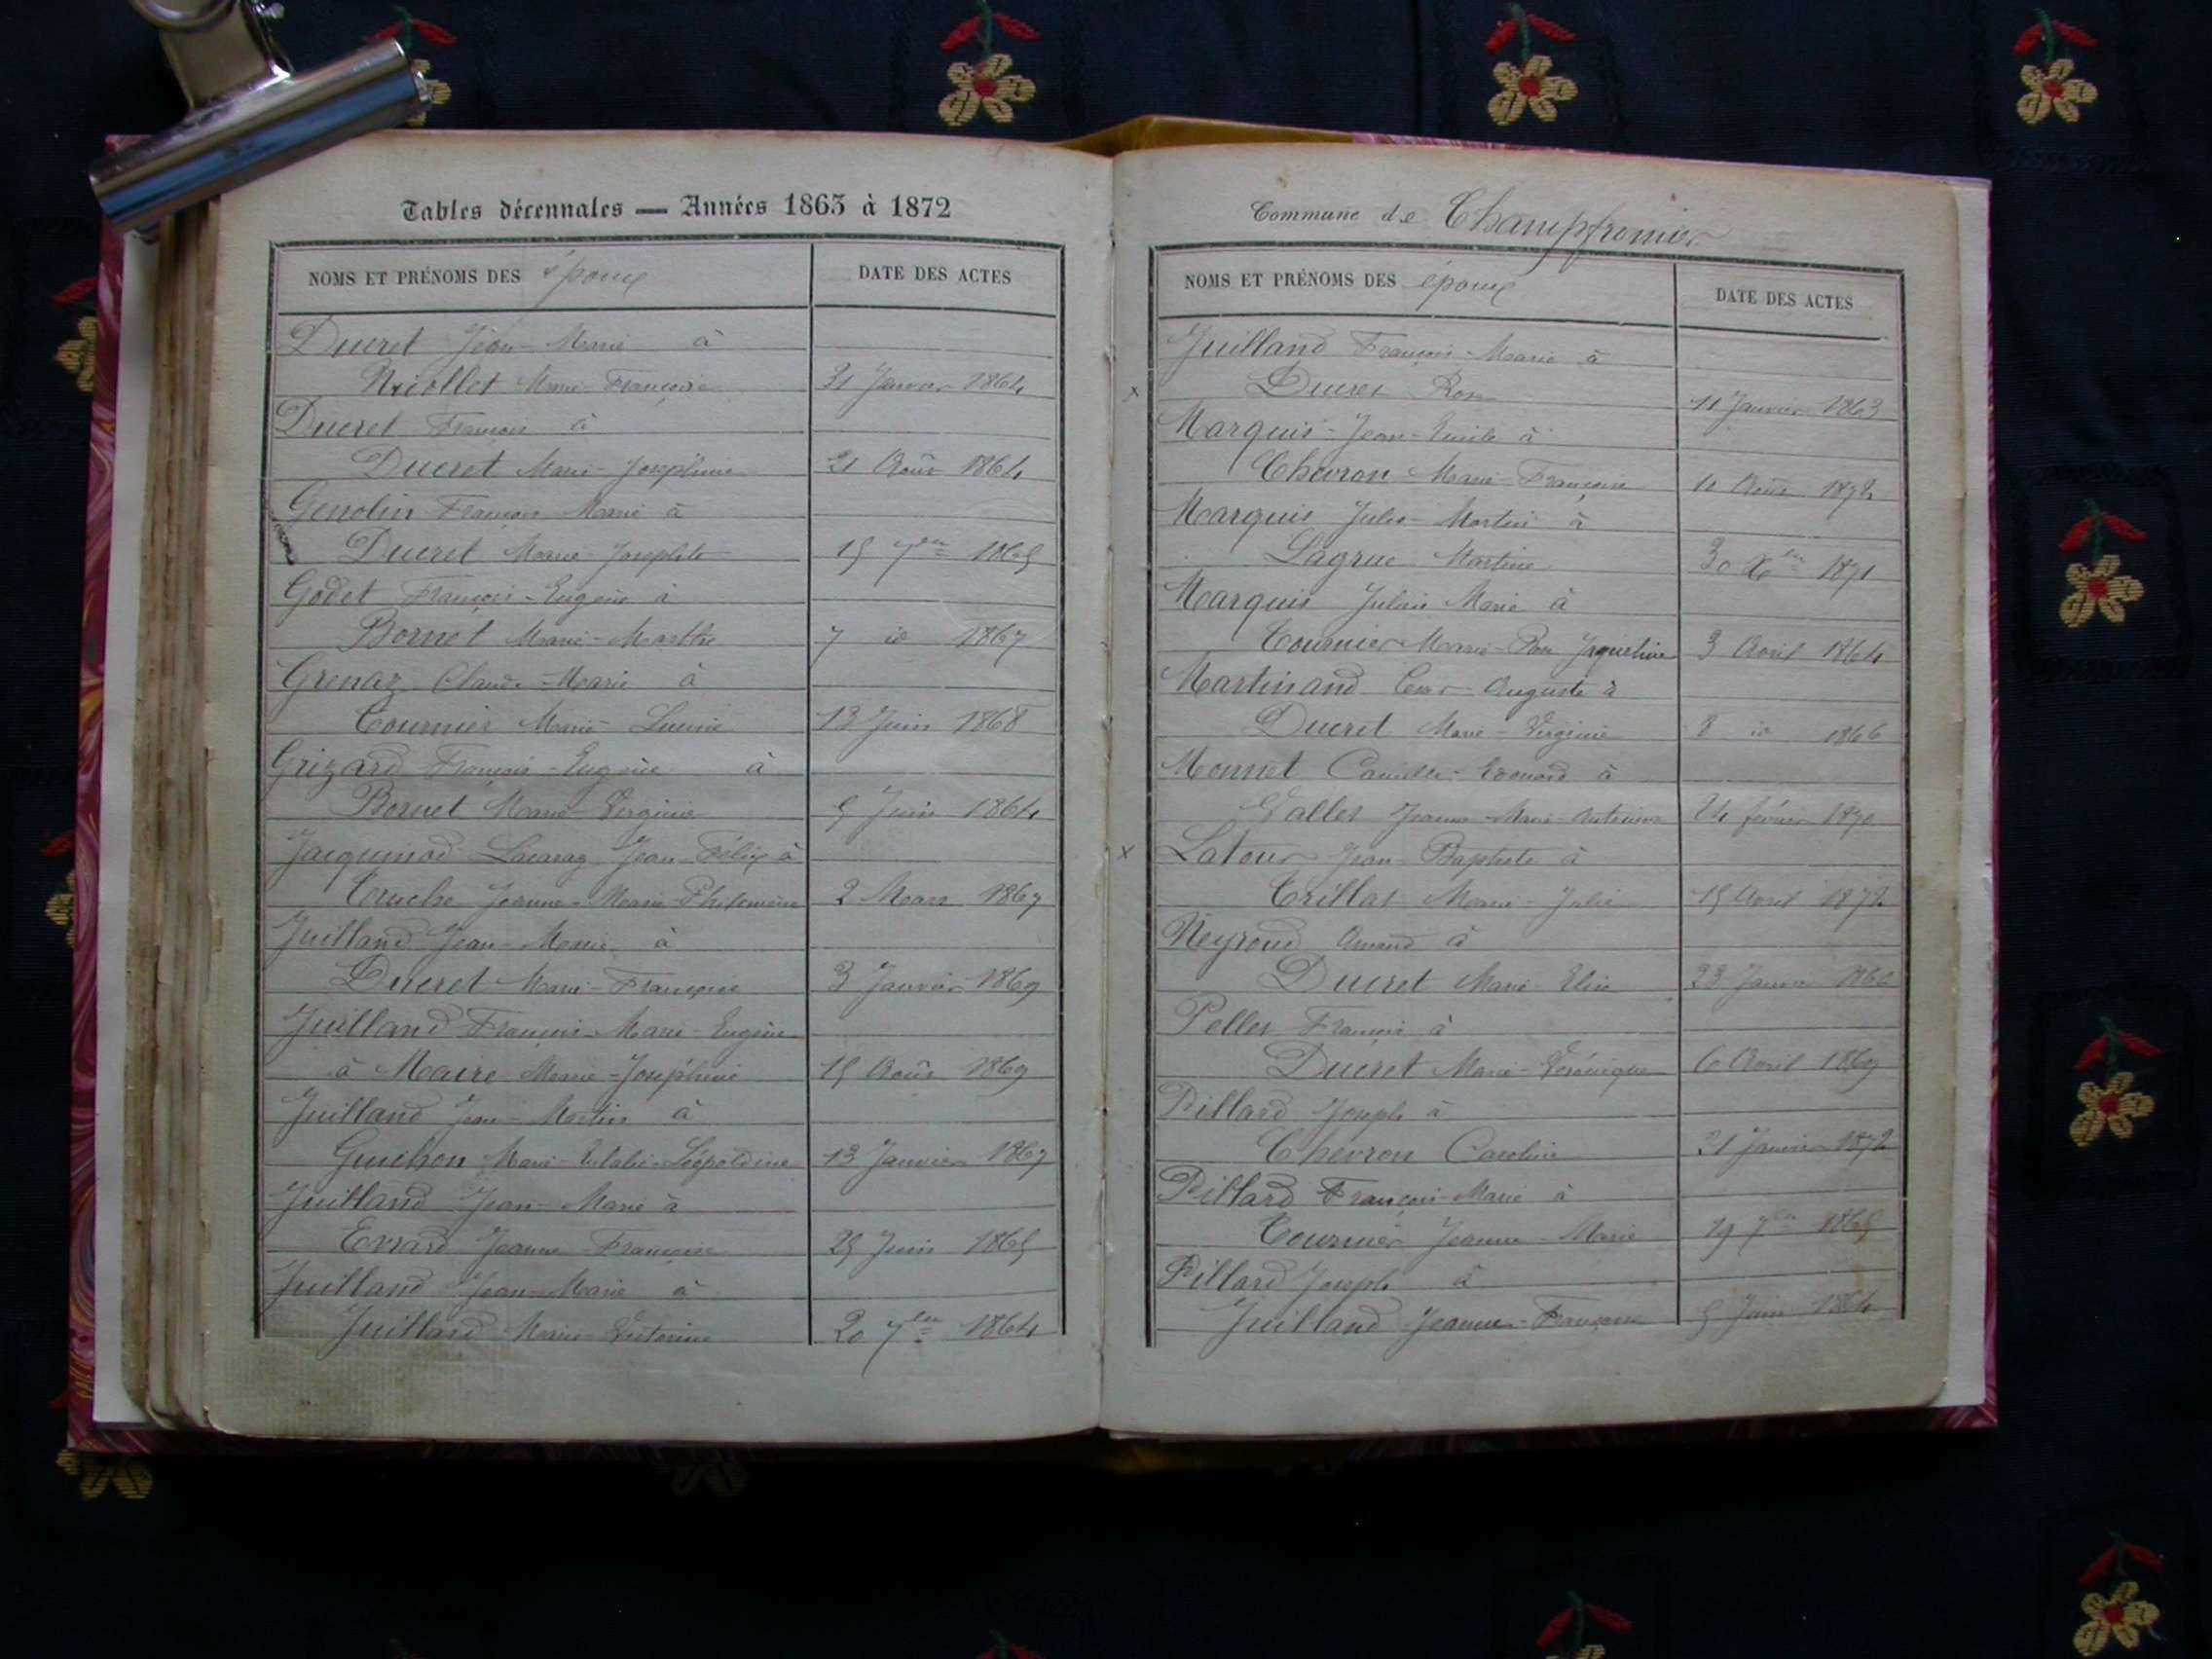 Tables décennales — Années 1863 à 1872
NOMS ET PRÉNOMS DES époux
DATE DES ACTES
Ducret Jean-Marie à
Nicollet Marie-Françoise 31 Janvier 1864
Ducret François à
Ducret Marie-Joséphine 21 Août 1864
Genolin François Marie à
Ducret Marie-Josephte 15 7bre 1865
Godet François-Eugène à
Bornet Marie-Marthe 7 io 1867
Grenaz Claude-Marie à
Tournier Marie- 13 Juin 1868
Grizard François-Eugène à
Bornet Marie-Virginie 5 Juin 1864
Jacquinod Lacaraz Jean-Félix à
Truche Jeanne-Marie-Philomène 2 Mars 1867
Juilland Jean-Marie à
Ducret Marie-Françoise 3 Janvier 1869
Juilland François-Marie-Eugène
à Maire Marie-Joséphine 15 Août 1869
Juilland Jean-Martin à
Guichon Marie-Eulalie-Léopoldine 13 Janvier 1867
Juilland Jean-Marie à
Evrard Jeanne-Françoise 25 Juin 1865
Juilland Jean-Marie à
Juilland Marie-Victorine 20 7bre 1864
Commune de Champfromier
NOMS ET PRÉNOMS DES époux
DATE DES ACTES
Juilland François-Marie à
x Ducret Rose 11 Janvier 1863
Marquis-Jean-Emile à
Chevron-Marie-Françoise 10 Août 1872
Marquis Jules-Martin à
Lagrue Martine 30 Xbre 1871
Marquis Julien Marie à
Tournier Marie-Rose Jaqueline 3 Avril 1864
Martinand-Auguste à
Ducret Marie-Virginie 8 io 1866
Monnet Camille-Edouard à
Vallet Jeanne-Marie-Antoinette 24 février 1870
x Latour Jean-Baptiste à
Trillat Marie-Julie 15 Avril 1872
Neyroud Amand à
Ducret Marie-Elise 23 Janvier 1866
Pellet François à
Ducret Marie-Véronique 6 Avril 1869
Pillard Joseph à
Chevron Caroline 31 Janvier 1872
Pillard François-Marie à
Tournier Jeanne-Marie 19 7bre 1865
Pillard Joseph à
Juilland Jeanne-Françoise 5 Juin 1864